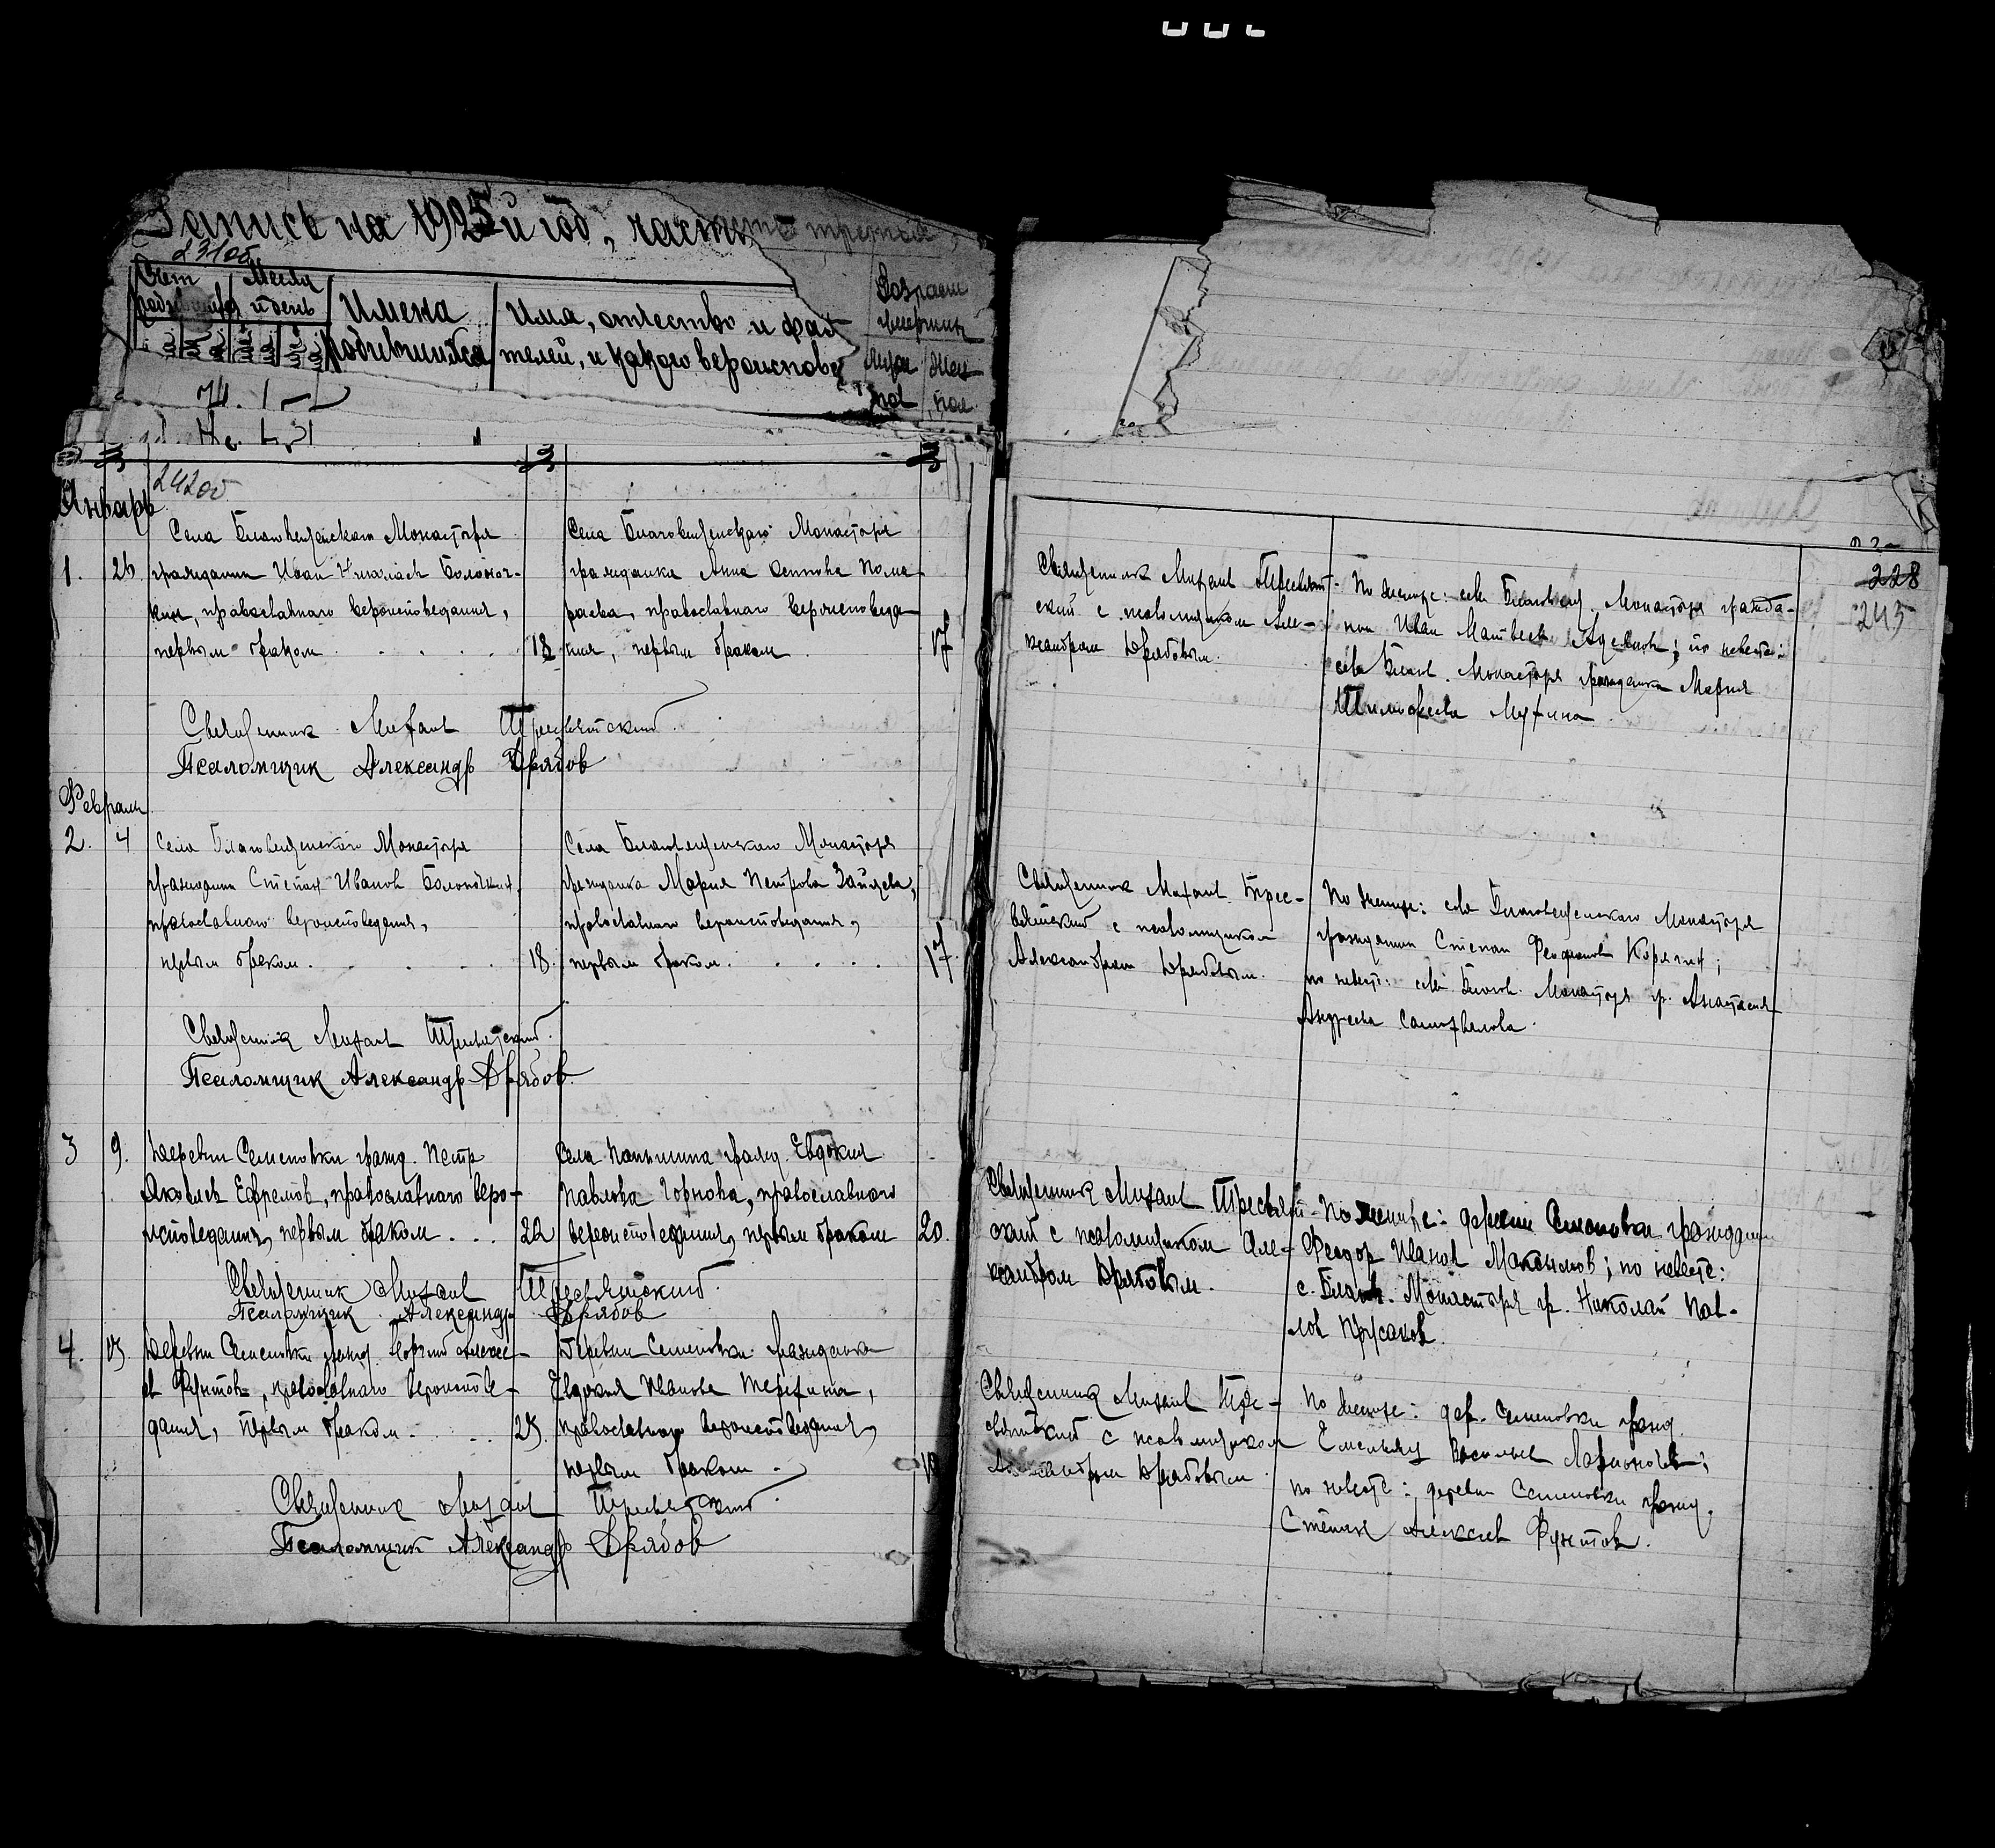 Запись на 1925й год, часть третья
231об.
Счет
Месяц
и день
Имена
родившихся
Имя, отчество и фам
телей, и какого вероиспове
Возраст
Муж
Жен
пол
пол.
242об
Январь
Села Благовещенскаго Монастыря
1. 26. гражданин Иван Болоноч-
кин, православнаго вероисповедания,
первым браком 18
Села Благовещенскаго Монастыря
гражданка Анна
православнаго вероисповеда-
ния, первым браком. 17
Священник Михаил Тресвятский
Псаломщик Александр Дрябов
Февраль
2. 4 Села Благовещенскаго Монастыря
гражданин Степан Иванов Болоночкин,
православнаго вероисповедания,
первым браком. 18.
Села Благовещенскаго Монастыря
гражданка Мария Петрова Зайцева,
православнаго вероисповедания,
первым браком. 17.
Священник Михаил Тресвятский.
Псаломщик Александр Дрябов.
3 9. Деревни Семеновки гражд. Петр
Яковлев Ефремов, православнаго веро-
исповедания, первым браком. 22
Села гражд. Евдокия
Павлова Горнова, православнаго
вероисповедания, первым браком 20.
Священник Михаил Тресвятский.
Псаломщик Александр Дрябов
4. Деревни Семеновки гражд. Алексе-
ев Фунтов, православнаго вероиспове-
дания, первым браком. 25.
Деревни Семеновки гражданка
Евдокия Иванова
православнаго вероисповедания,
первым браком.
Священник Михаил Тресвятский.
Псаломщик Александр Дрябов
228
245
Священник Михаил Тресвят-
ский с псаломщиком Але-
ксандром Дрябовым.
По женихе: села Благовещ. Монастыря гражда-
нин Иван Матвеев по невесте:
села Благов. Монастыря гражданка Мария
Тимофеева
Священник Михаил Трес-
вятский с псаломщиком
Александром Дрябовым.
По женихе: села Благовещенскаго Монастыря
гражданин Степан Феофанов Корягин;
по невесте: села Благов. Монастыря гр. Анастасия
Андреева
Священник Михаил Тресвят-
ский с псаломщиком Але-
ксандром Дрябовым.
По женихе: деревни Семеновки гражданин
Феодор Иванов Максимов; по невесте:
с. Благов. Монастыря гр. Николай Пав-
лов Прусаков.
Священник Михаил Тре-
святский с псаломщиком
Александром Дрябовым.
По женихе: дер. Семеновки гражд.
Емельян Васильев Ларионов;
по невесте: деревни Семеновки гражд.
Степан Алексеев Фунтов.